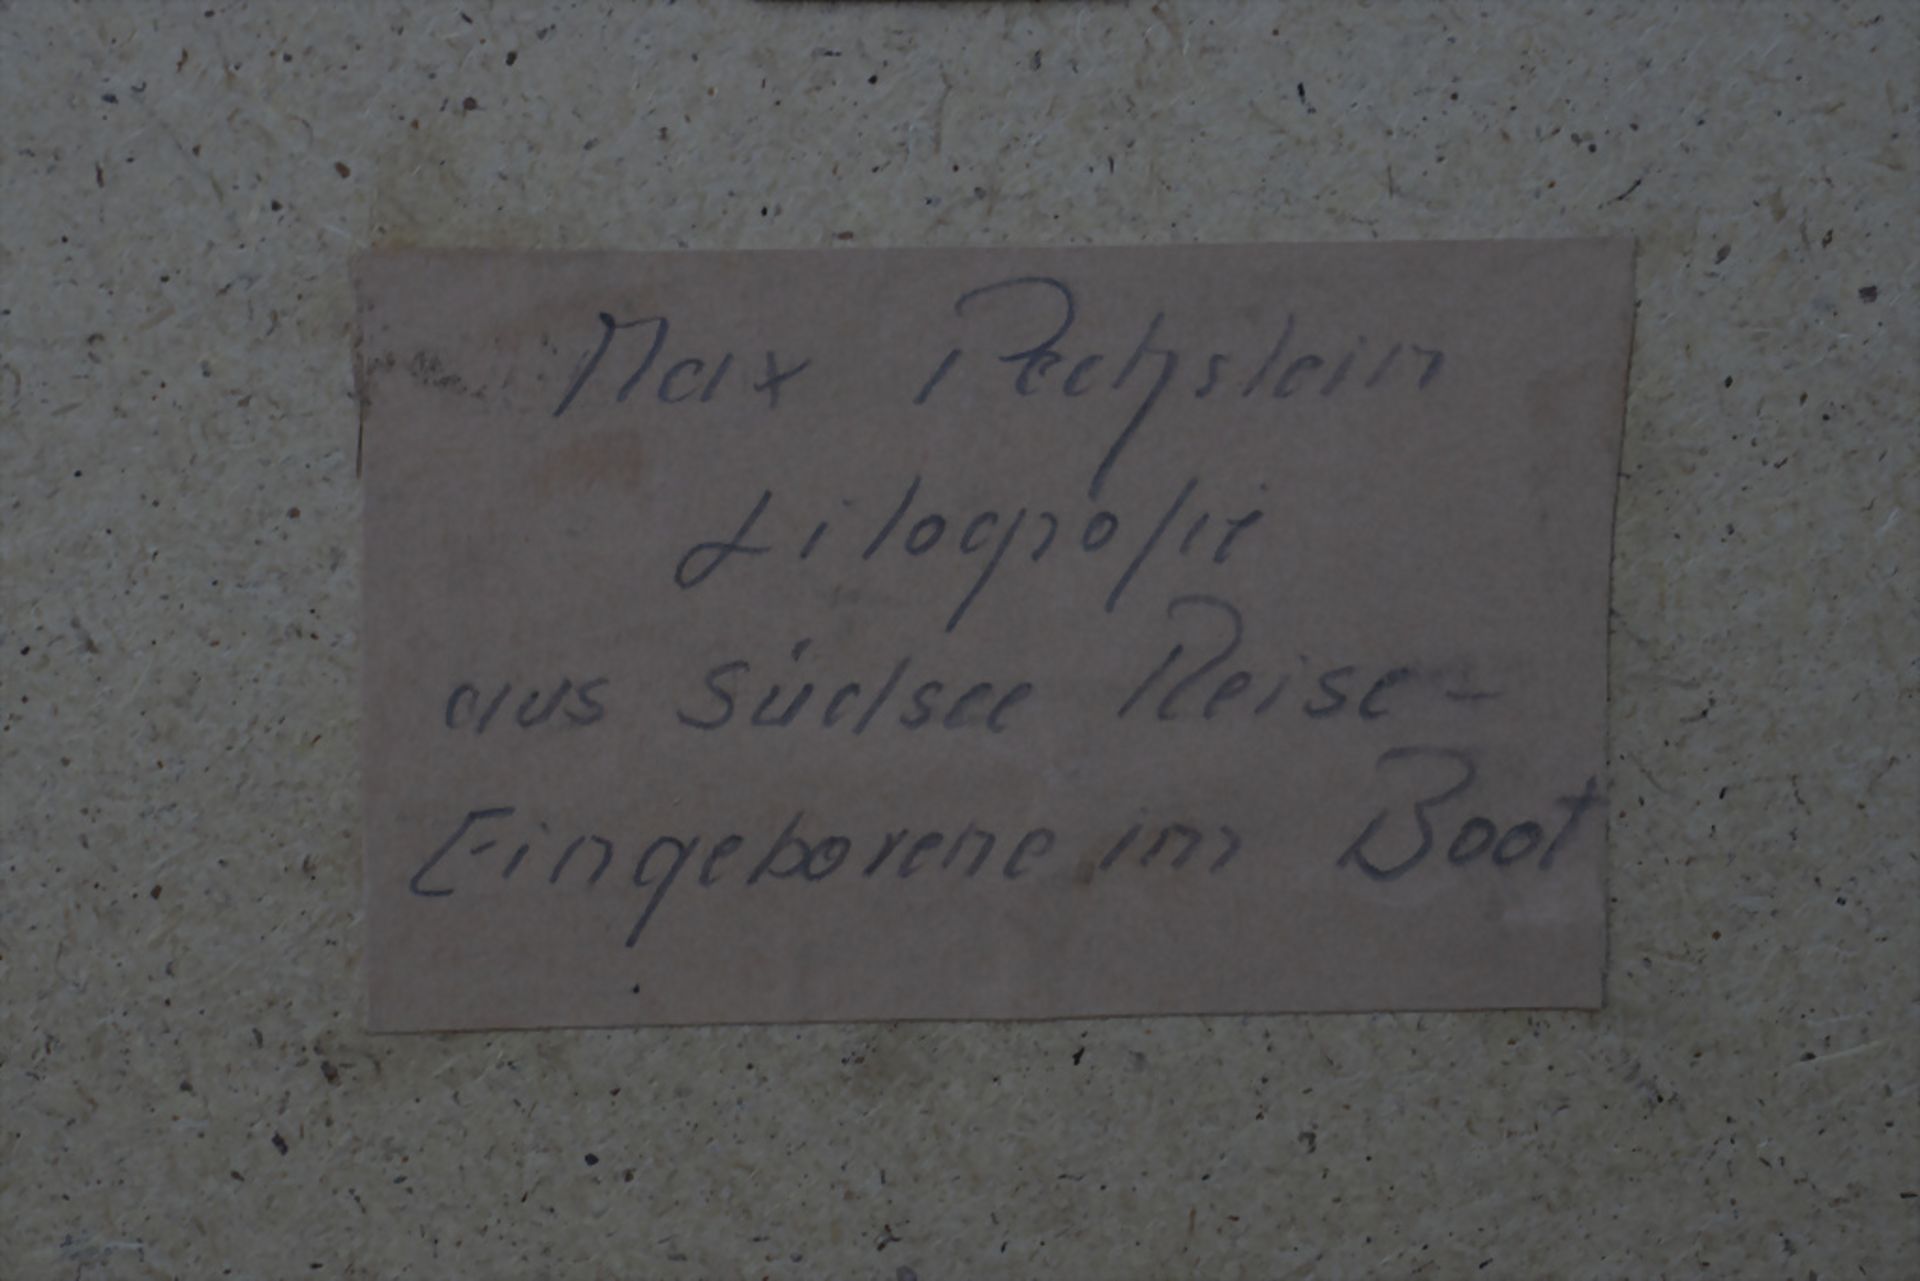 Max Pechstein
Litografie
aus Südsee Reise-
Eingeborene im Boot